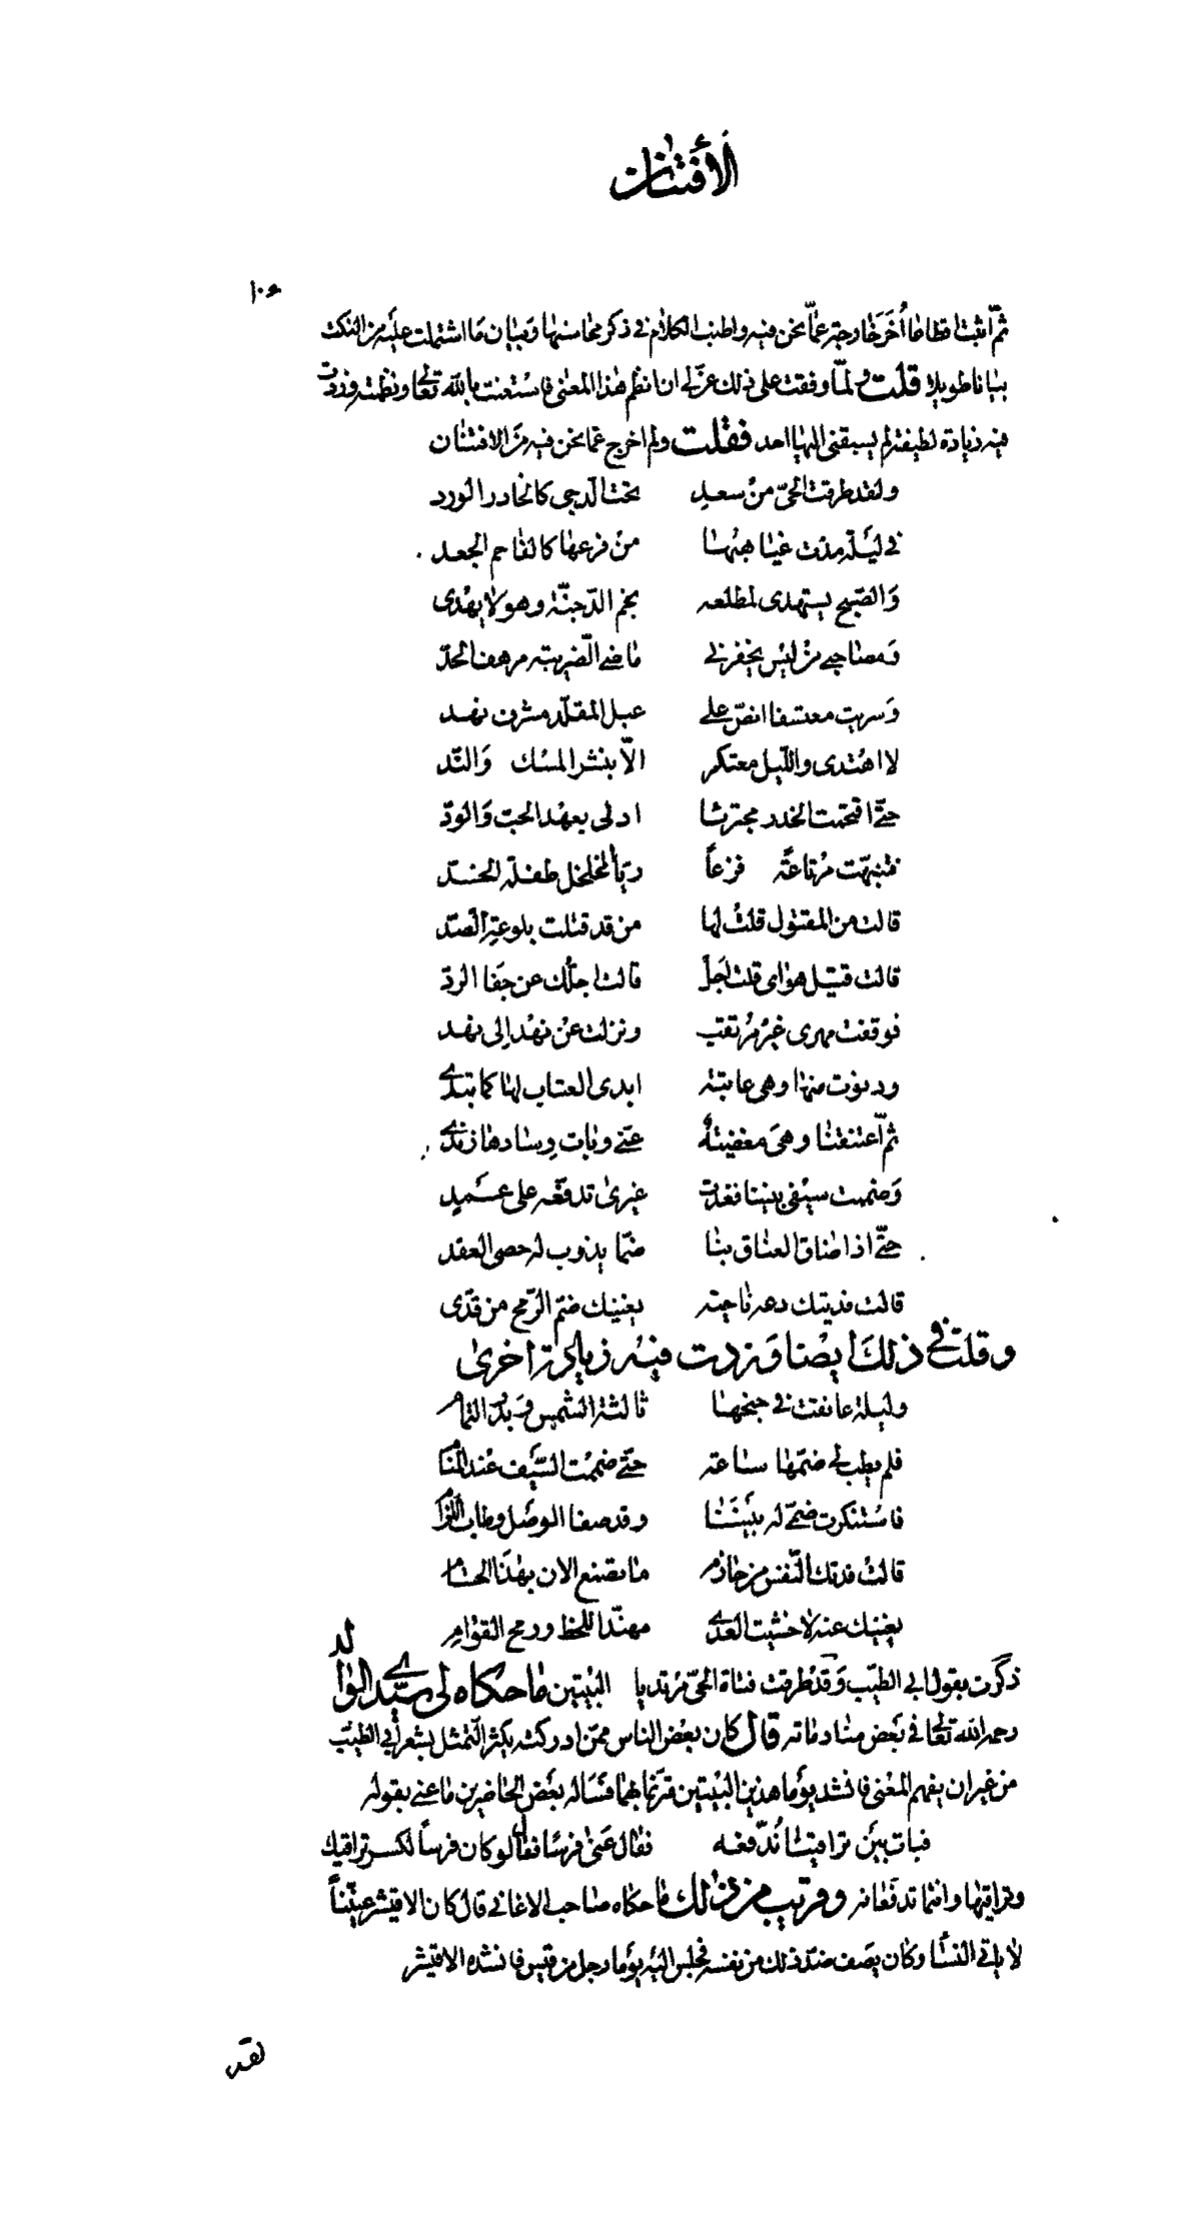 الأفتنان
١٠٤
ثمّ اثبت اقطاعا أُخر خارجة عمّا نحن فيه واطنب الكلام في ذكر محاسنها وبيان ما اشتملت عليه من النكت
بيانا طويلا قلت ولمّا وقفت على ذلك عنّ لي ان انظم هذا المعنى فاستعنت بالله تعالى ونظمته وزدت
فيه زيادة لطيفة لم يسبقني اليها احد فقلت ولم اخرج عما نحن فيه من الافتنان
ولقد طرقت الحيّ من سعد تحت الدجى كالخادر الورد
في ليلة مدّت غياهبها من فرعها كالفاحم الجعد
والصّبح يستهدى لمطلعه نجم الدّجنّة وهو لا يهدى
وصاحبي من ليس يخفرني ماضي الضّريبة مرهف الحدّ
وسريت معتسفا انصّ على عبل المقلّد مشرف نهد
لا اهتدى والليل معتكر الّا بنشر المسك والنّد
حتّى اقتحمت الخدر مجترئا ادلى بعهد الحبّ والودّ
فتنبّهت مرتاعةً فزعاً ريّا المخلخل طفلة الخدّ
قالت من المقتول قلت لها من قد قتلت بلوعة الصّد
قالت قتيل هواى قلت اجل قالت اجلّك عن جفا الردّ
فوقفت مهرى غير مرتقب ونزلت عن نهد الى نهد
ودنوت منها وهى عاتبة ابدى العتاب لها كما تبدى
ثمّ اعتنقنا وهى مغضية عنّى وبات وسادها زندى
وضممت سيفى بيننا فغدت غيرى تدفّعه على عمد
حتّى اذا ضاق العناق بنا ضمّا يذوب له حصى العقد
قالت فديتك دعه ناحية يغنيك ضمّ الرّمح من قدّى
وقلت في ذلك ايضا وزدت فيه زيادة اخرى
وليلة عانقت في جنحها ثالثة الشّمس وبدر التّمام
فلم يطب لي ضمّها ساعة حتّى ضممت السّيف عند المنام
فاستنكرت ضمّى له بيننا وقد صفا الوصل وطاب اللزام
قالت فدتك النّفس من حازم ما تصنع الان بهذا الحسام
يغنيك عنه لا خشيت العدى مهنّد اللحظ ورمح القوام
ذكرت بقول ابي الطيّب وقد طرقت فتاة الحيّ مرتديا البيتين ما حكاه لي سيّدي الوالد
رحمه الله تعالى في بعض منادماته قال كان بعض الناس ممّن ادركته يكثر التمثل بشعر أبي الطيّب
من غير ان يفهم المعنى فانشد يوما هذين البيتين مترنّما بهما فسأله بعض الحاضرين ما عنى بقوله
فبات بين تراقينا نُدّفعه فقال عنى فرسًا فقال لو كان فرسًا لكسر تراقيك
وتراقيها وانما تدفعانه وقريب من ذلك ما حكاه صاحب الاغاني قال كان الاقيشر عنّيناً
لا ياتي النسا وكان يصف ضدّ ذلك من نفسه فجلس اليه يوما رجل من قيس فانشده الاقيشر
لقد